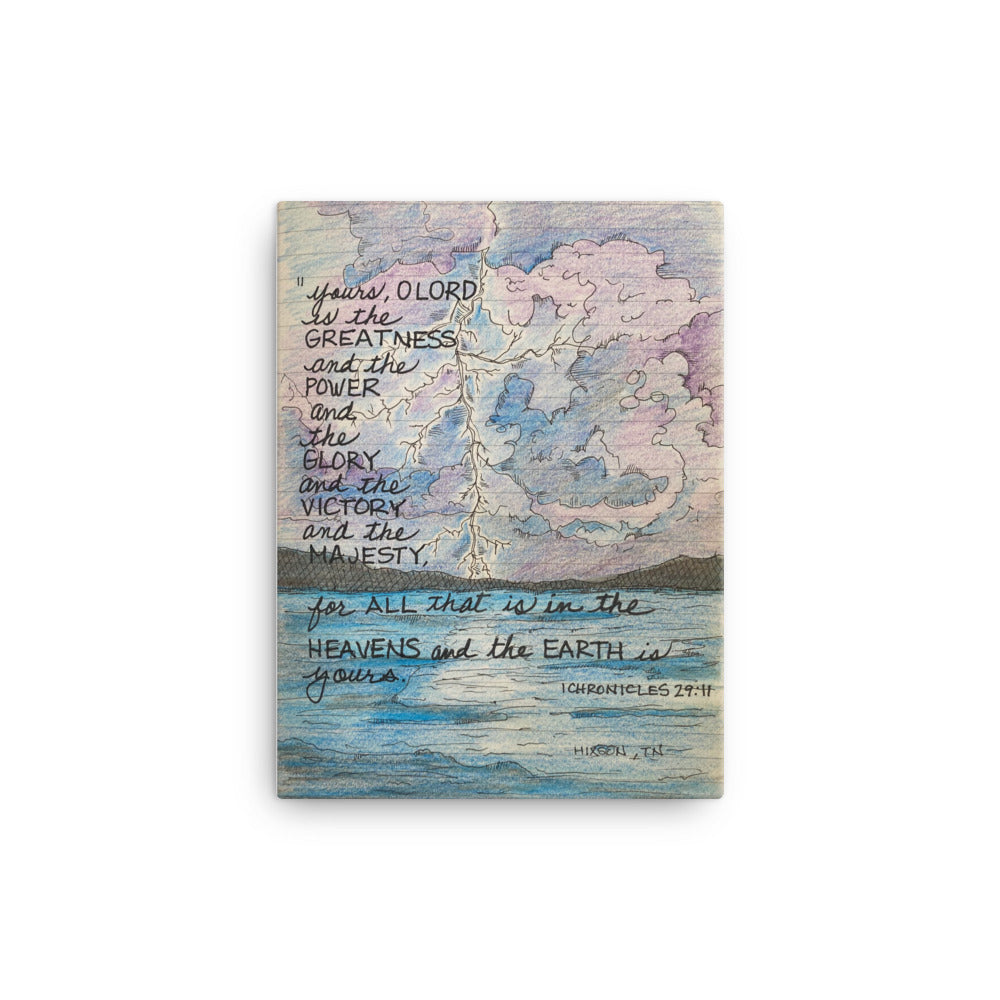 "yours, O LORD
is the
GREATNESS
and the
POWER
and
the
GLORY
and the
VICTORY
and the
MAJESTY,
for ALL that is in the
HEAVENS and the EARTH is
yours.
1 CHRONICLES 29:11
HIXSON, TN